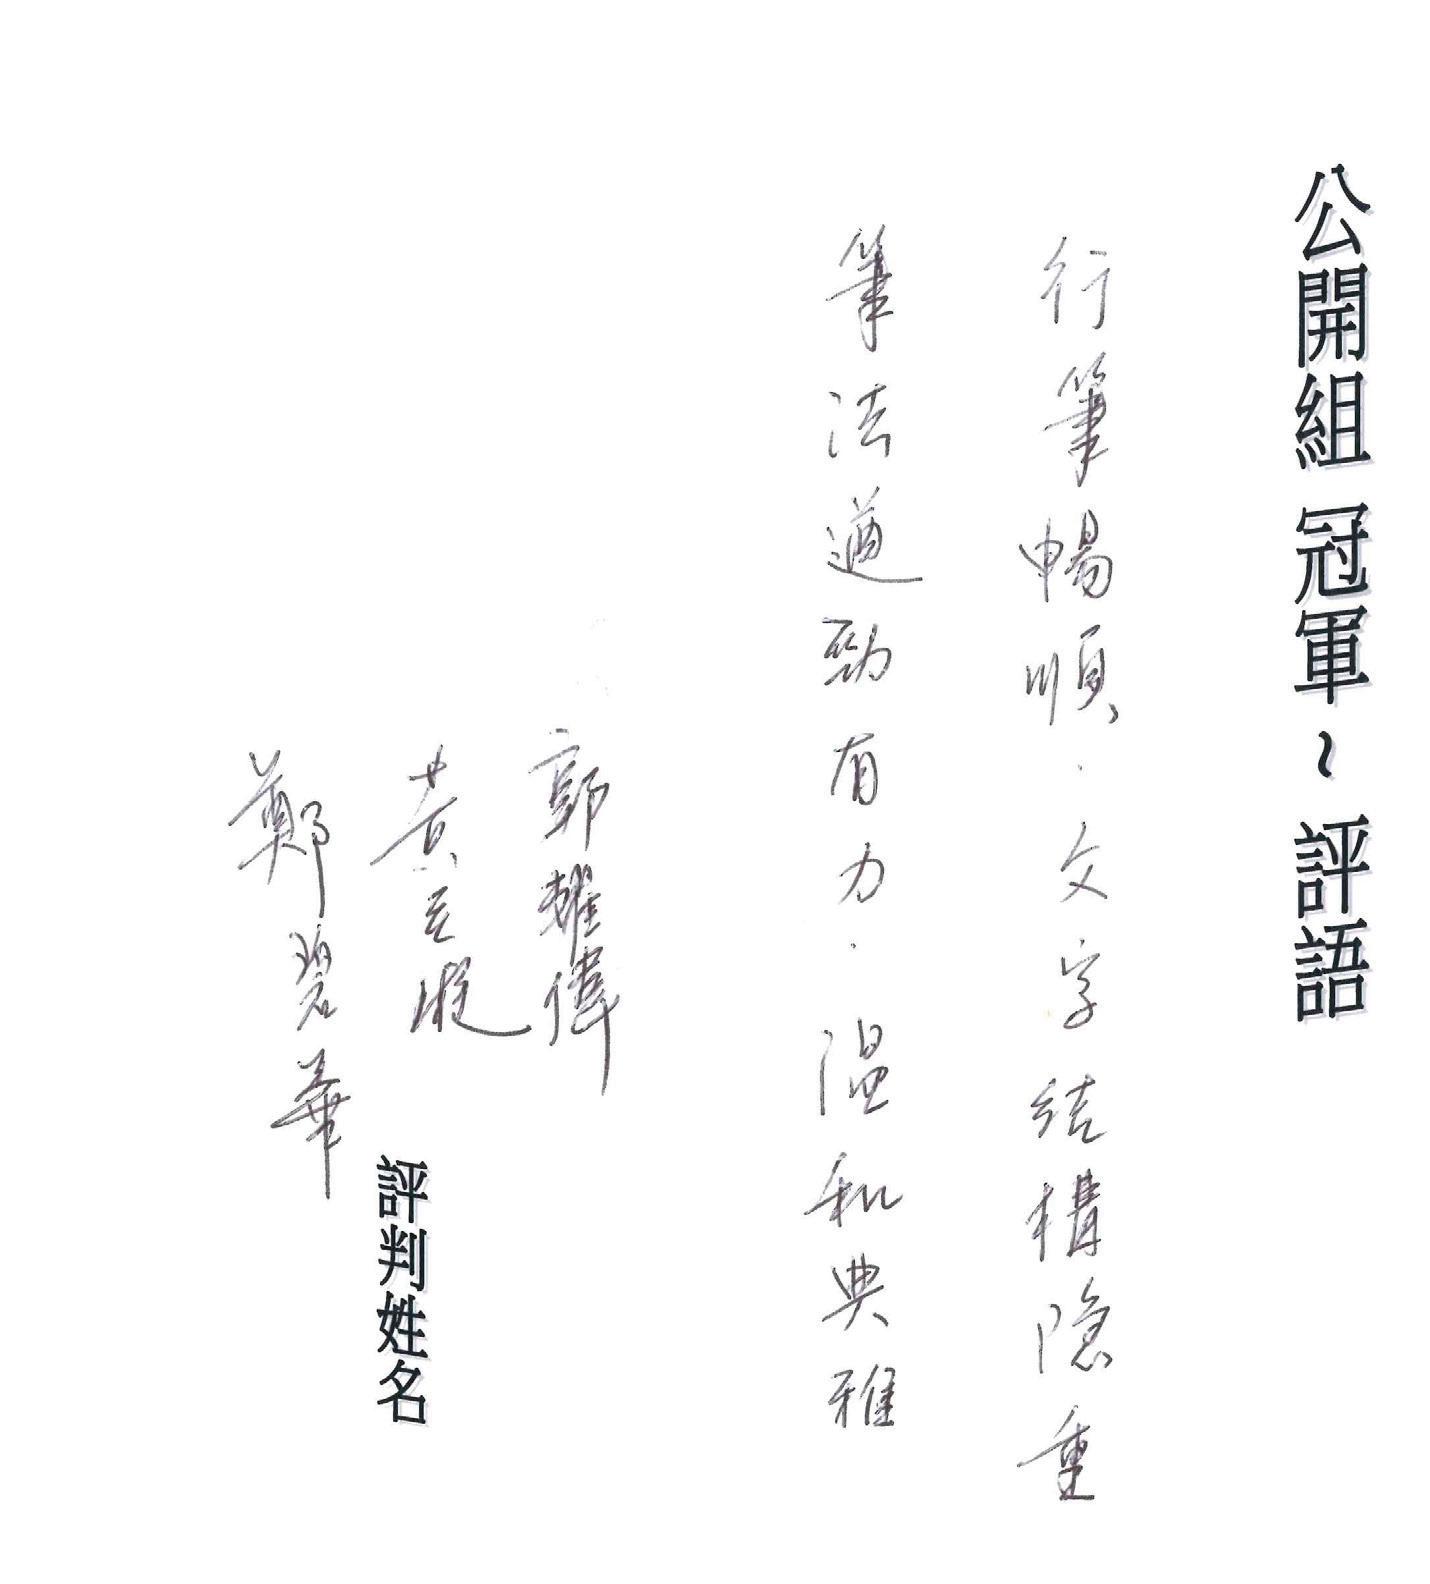 公開組 冠軍 ~ 評語
行筆暢順．文字結構隐重
筆法遒勁有力．溫和典雅
郭耀偉
黃
鄭碧華
評判姓名